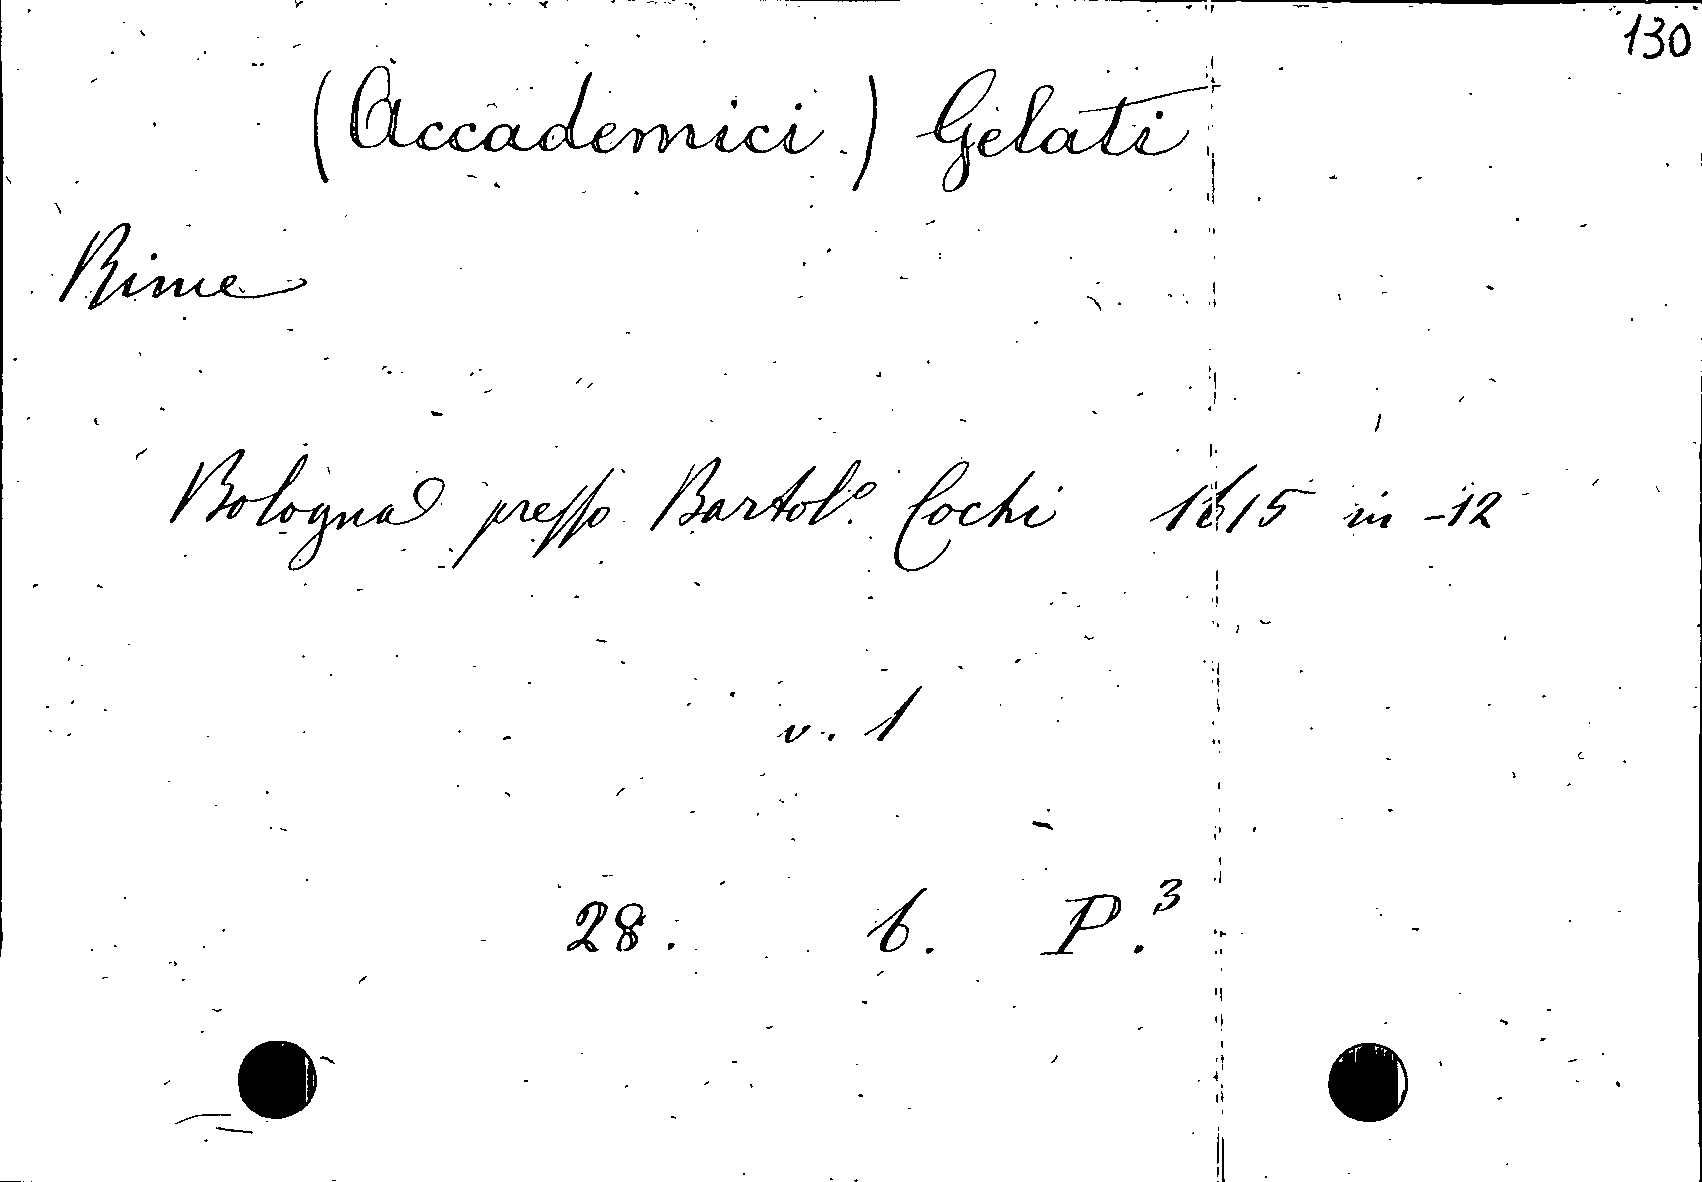 130
(Accademici.) Gelati
Rime
Bologna presso Bartol.º Cochi 1615 in -12
v. 1
28. b. P.³